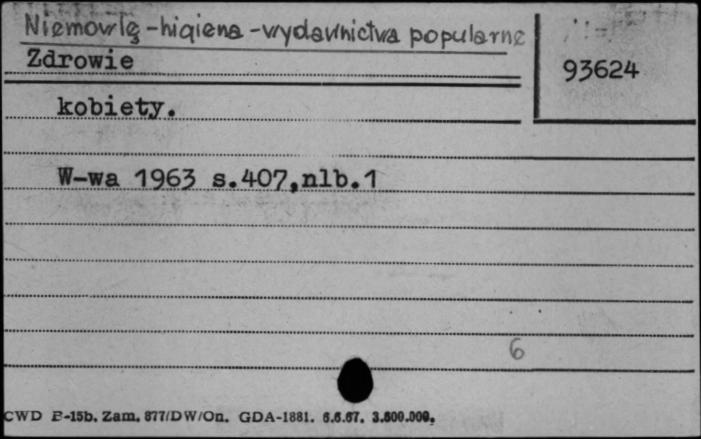 Niemowlę - higiena - wydawnictwa popularne
Zdrowie
93624
kobiety.
W-wa 1963 s.407,nlb.1
6
CWD P-15b. Zam. 877/DW/On. GDA-1881. 6.6.67. 3.600.000,